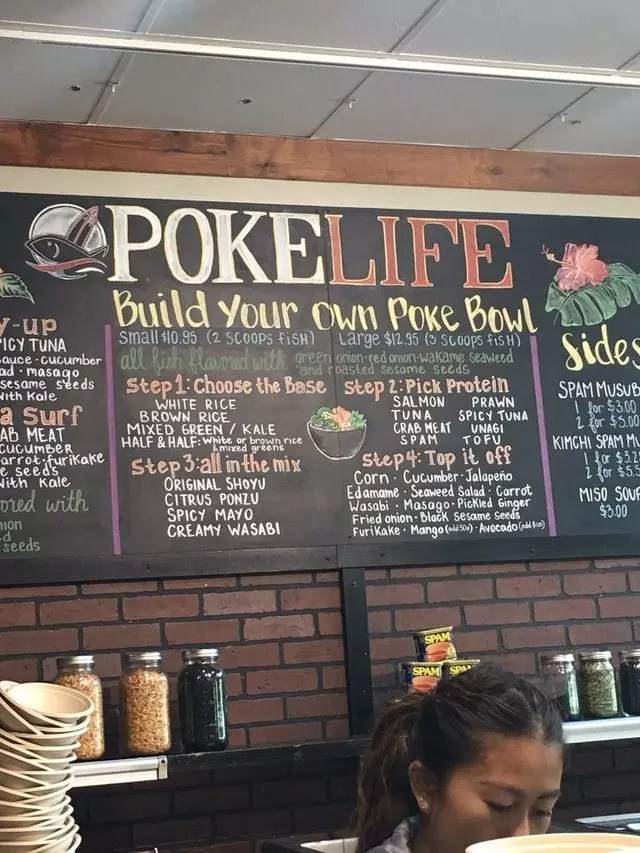 POKELIFE
Build Your Own Poke Bowl
Small $10.95 (2 SCOOPS FiSH) Large $12.95 (3 SCOOPS FiSH)
all fish flavored with green onion·red onion·wakame seaweed
and roasted sesame seeds
Step 1: Choose the Base
WHITE RICE
BROWN RICE
MIXED GREEN / KALE
HALF & HALF: White or brown rice
& mixed greens
Step 2: Pick Protein
SALMON PRAWN
TUNA SPICY TUNA
CRAB MEAT UNAGI
SPAM TOFU
Step 3: all in the mix
ORIGINAL SHOYU
CITRUS PONZU
SPICY MAYO
CREAMY WASABI
Step 4: Top it off
Corn · Cucumber · Jalapeño
Edamame · Seaweed Salad · Carrot
Wasabi · Masago · Pickled Ginger
Fried onion · Black Sesame Seeds
Furikake · Mango (add 50¢) · Avocado (add $1.00)
y-up
PICY TUNA
sauce·cucumber
ad·masago
sesame seeds
with Kale
a Surf
AB MEAT
CUCUMBER
arrot·furikake
e seeds
with Kale
ored with
nion
d
seeds
Sides
SPAM MUSUB
1 for $3.00
2 for $5.00
KIMCHI SPAM M
1 for $3.2
2 for $5.5
MISO SOUP
$3.00
SPAM
SPAM
SPAM